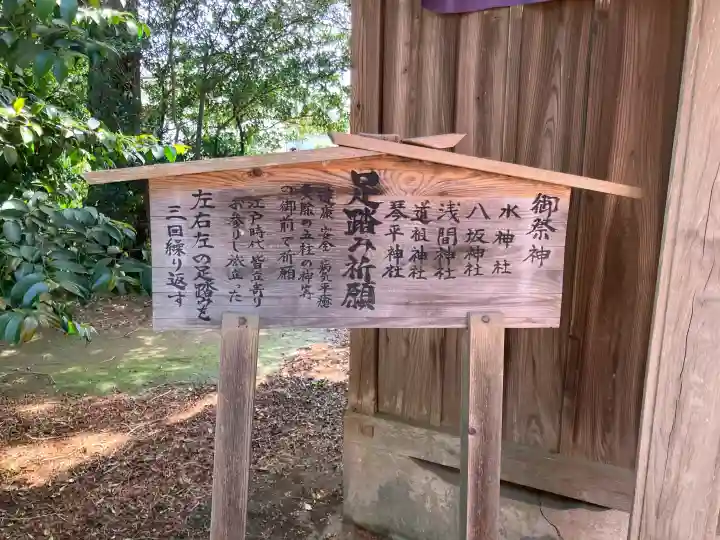 御祭神
水神社
八坂神社
浅間神社
道祖神社
琴平神社
足踏み祈願
健康 安全 病気平癒
の御前で祈願
江戸時代 皆立寄り
お参りし旅立った
左右左の足踏みを
三回繰り返す